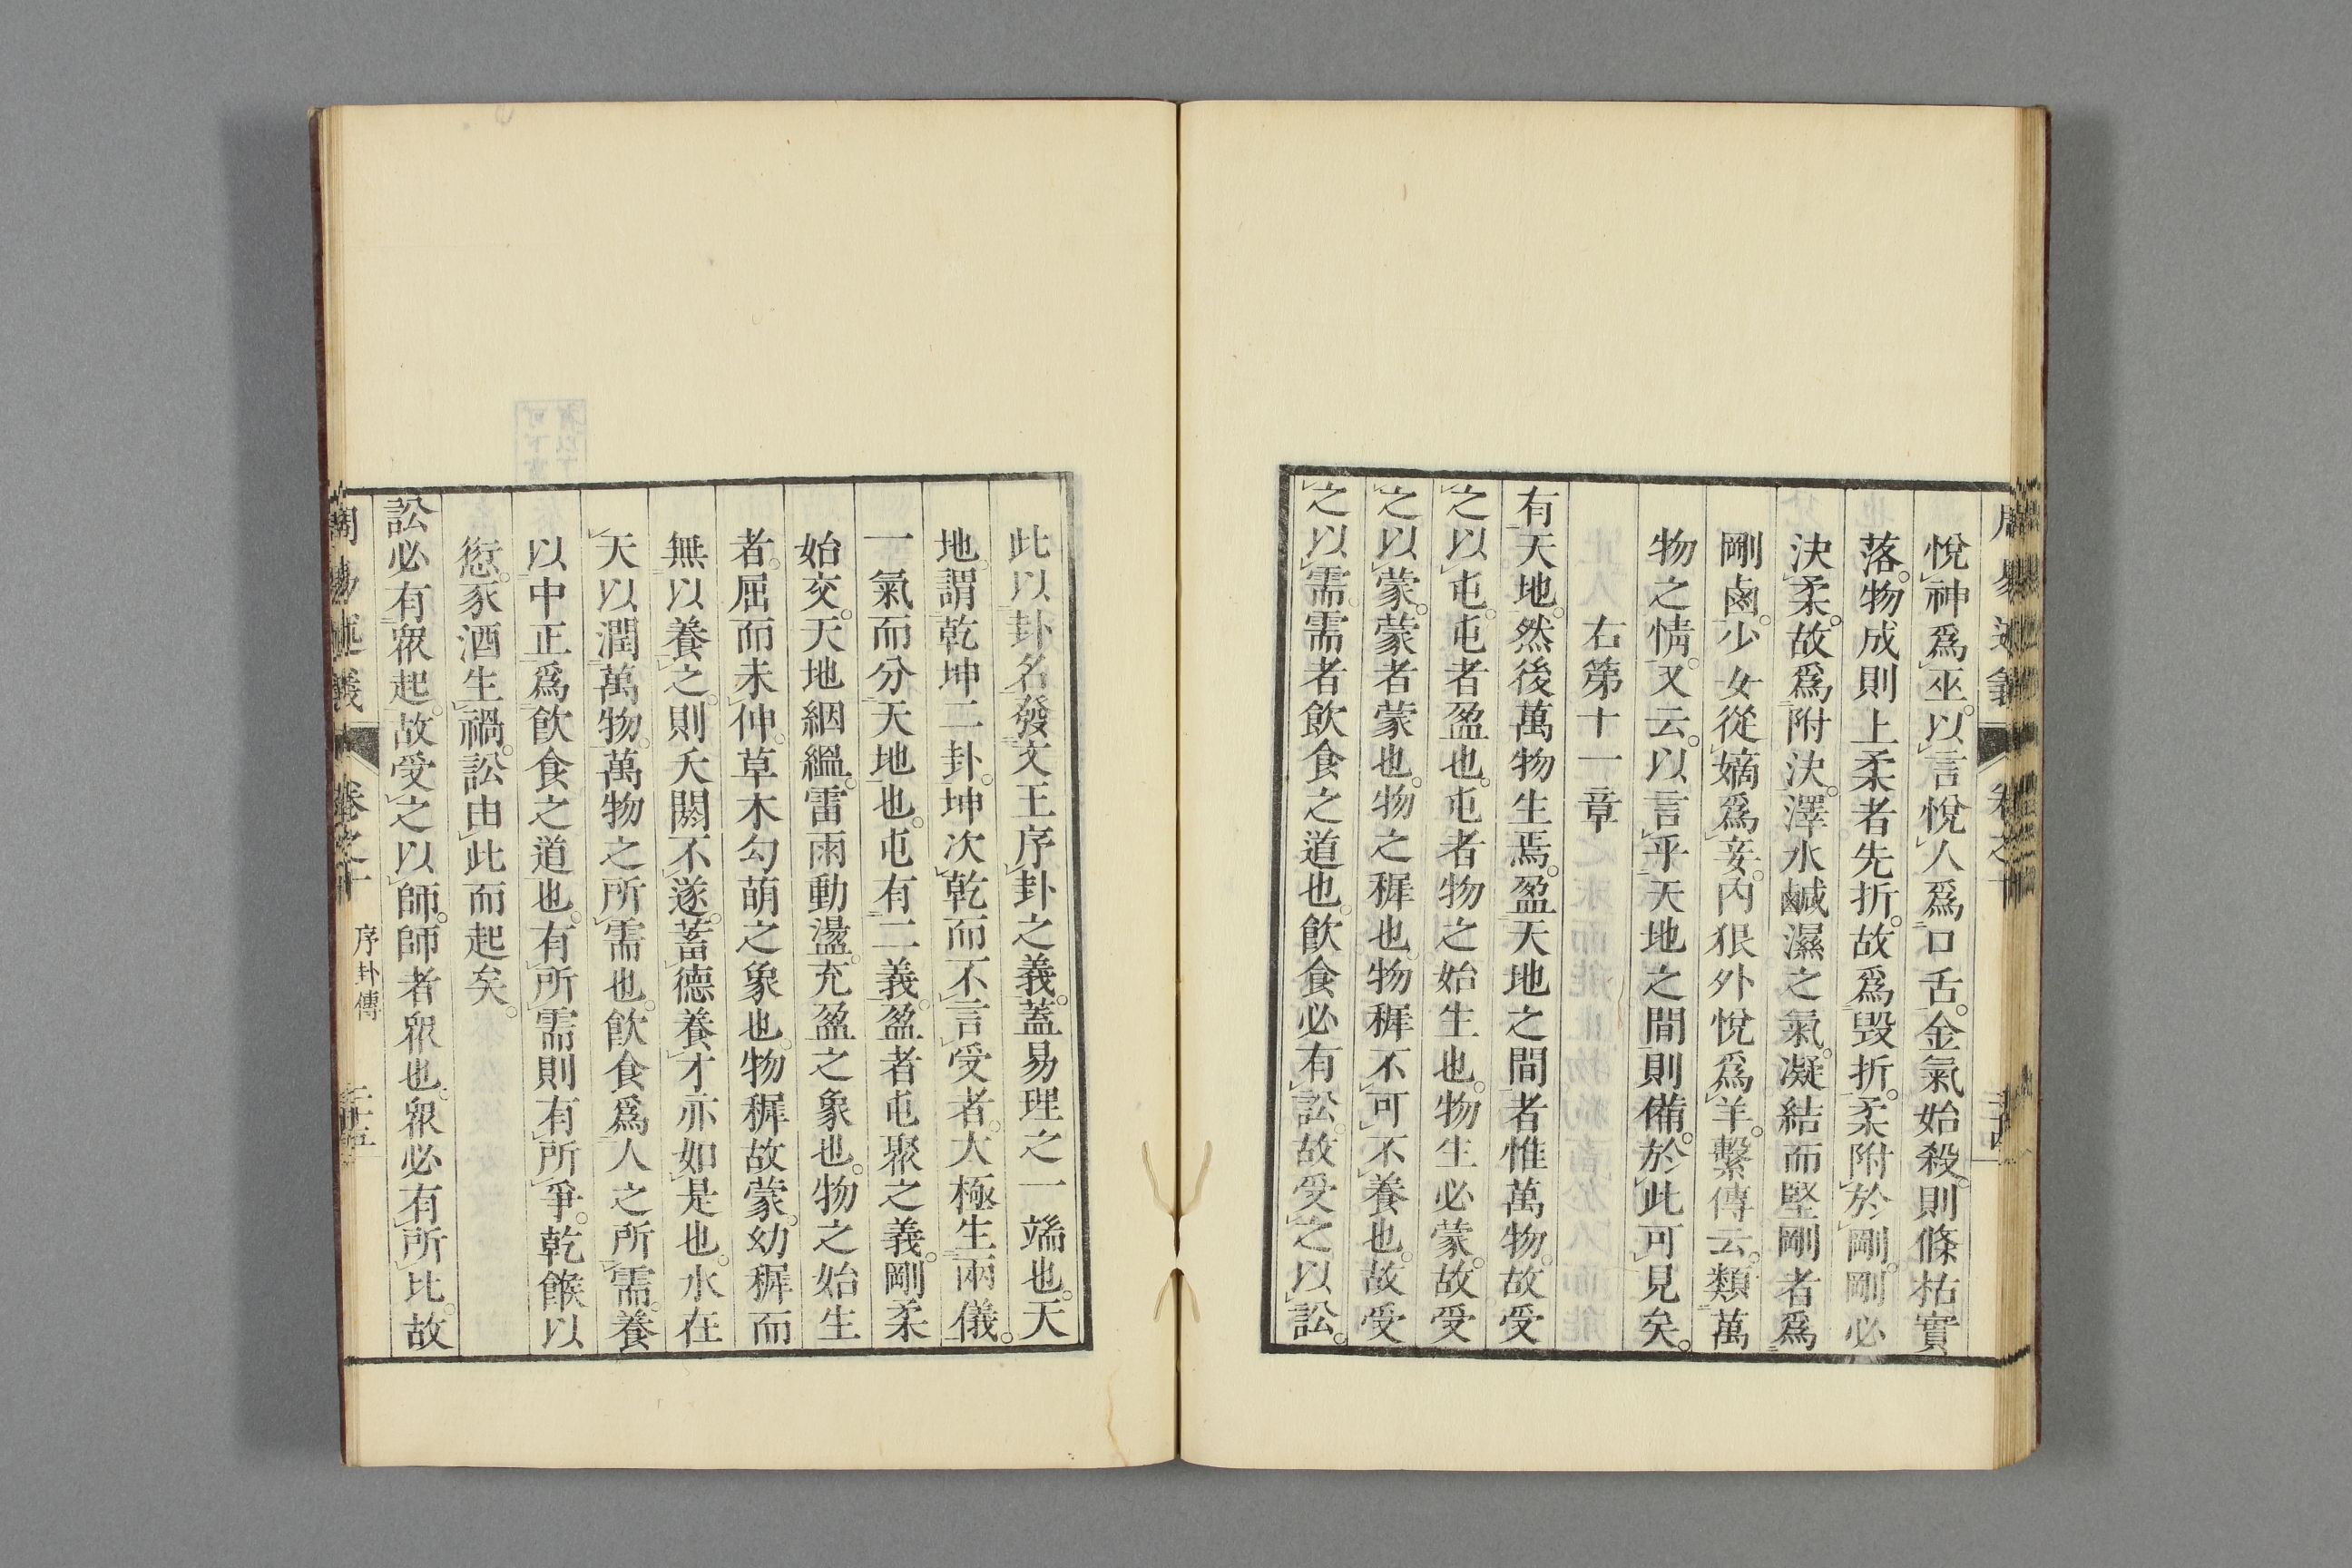 悅神爲巫。以言悅人爲口舌。金氣始殺。則條枯實
落。物成則上柔者先折。故爲毀折。柔附於剛。剛必
決柔。故爲附決。澤水鹹濕之氣。凝結而堅剛者爲
剛鹵。少女從嫡爲妾。內狠外悅爲羊。繫傳云。類萬
物之情。又云。以言乎天地之間則備。於此可見矣。
右第十一章
有天地。然後萬物生焉。盈天地之間者惟萬物。故受
之以屯。屯者盈也。屯者物之始生也。物生必蒙。故受
之以蒙。蒙者蒙也。物之穉也。物穉不可不養也。故受
之以需。需者飲食之道也。飲食必有訟。故受之以訟。
此以卦名發文王序卦之義。蓋易理之一端也。天
地。謂乾坤二卦。坤次乾而不言受者。大極生兩儀。
一氣而分天地也。屯有二義。盈者屯聚之義。剛柔
始交。天地絪縕。雷雨動盪。充盈之象也。物之始生
者。屈而未伸。草木勾萌之象也。物穉故蒙。幼穉而
無以養之。則夭閼不遂。蓄德養才亦如是也。水在
天以潤萬物。萬物之所需也。飲食爲人之所需。養
以中正爲飲食之道也。有所需則有所爭。乾餱以
愆。豕酒生禍。訟由此而起矣。
訟必有衆起。故受之以師。師者衆也。衆必有所比。故
周易述義 卷之十 序卦傳 二十五